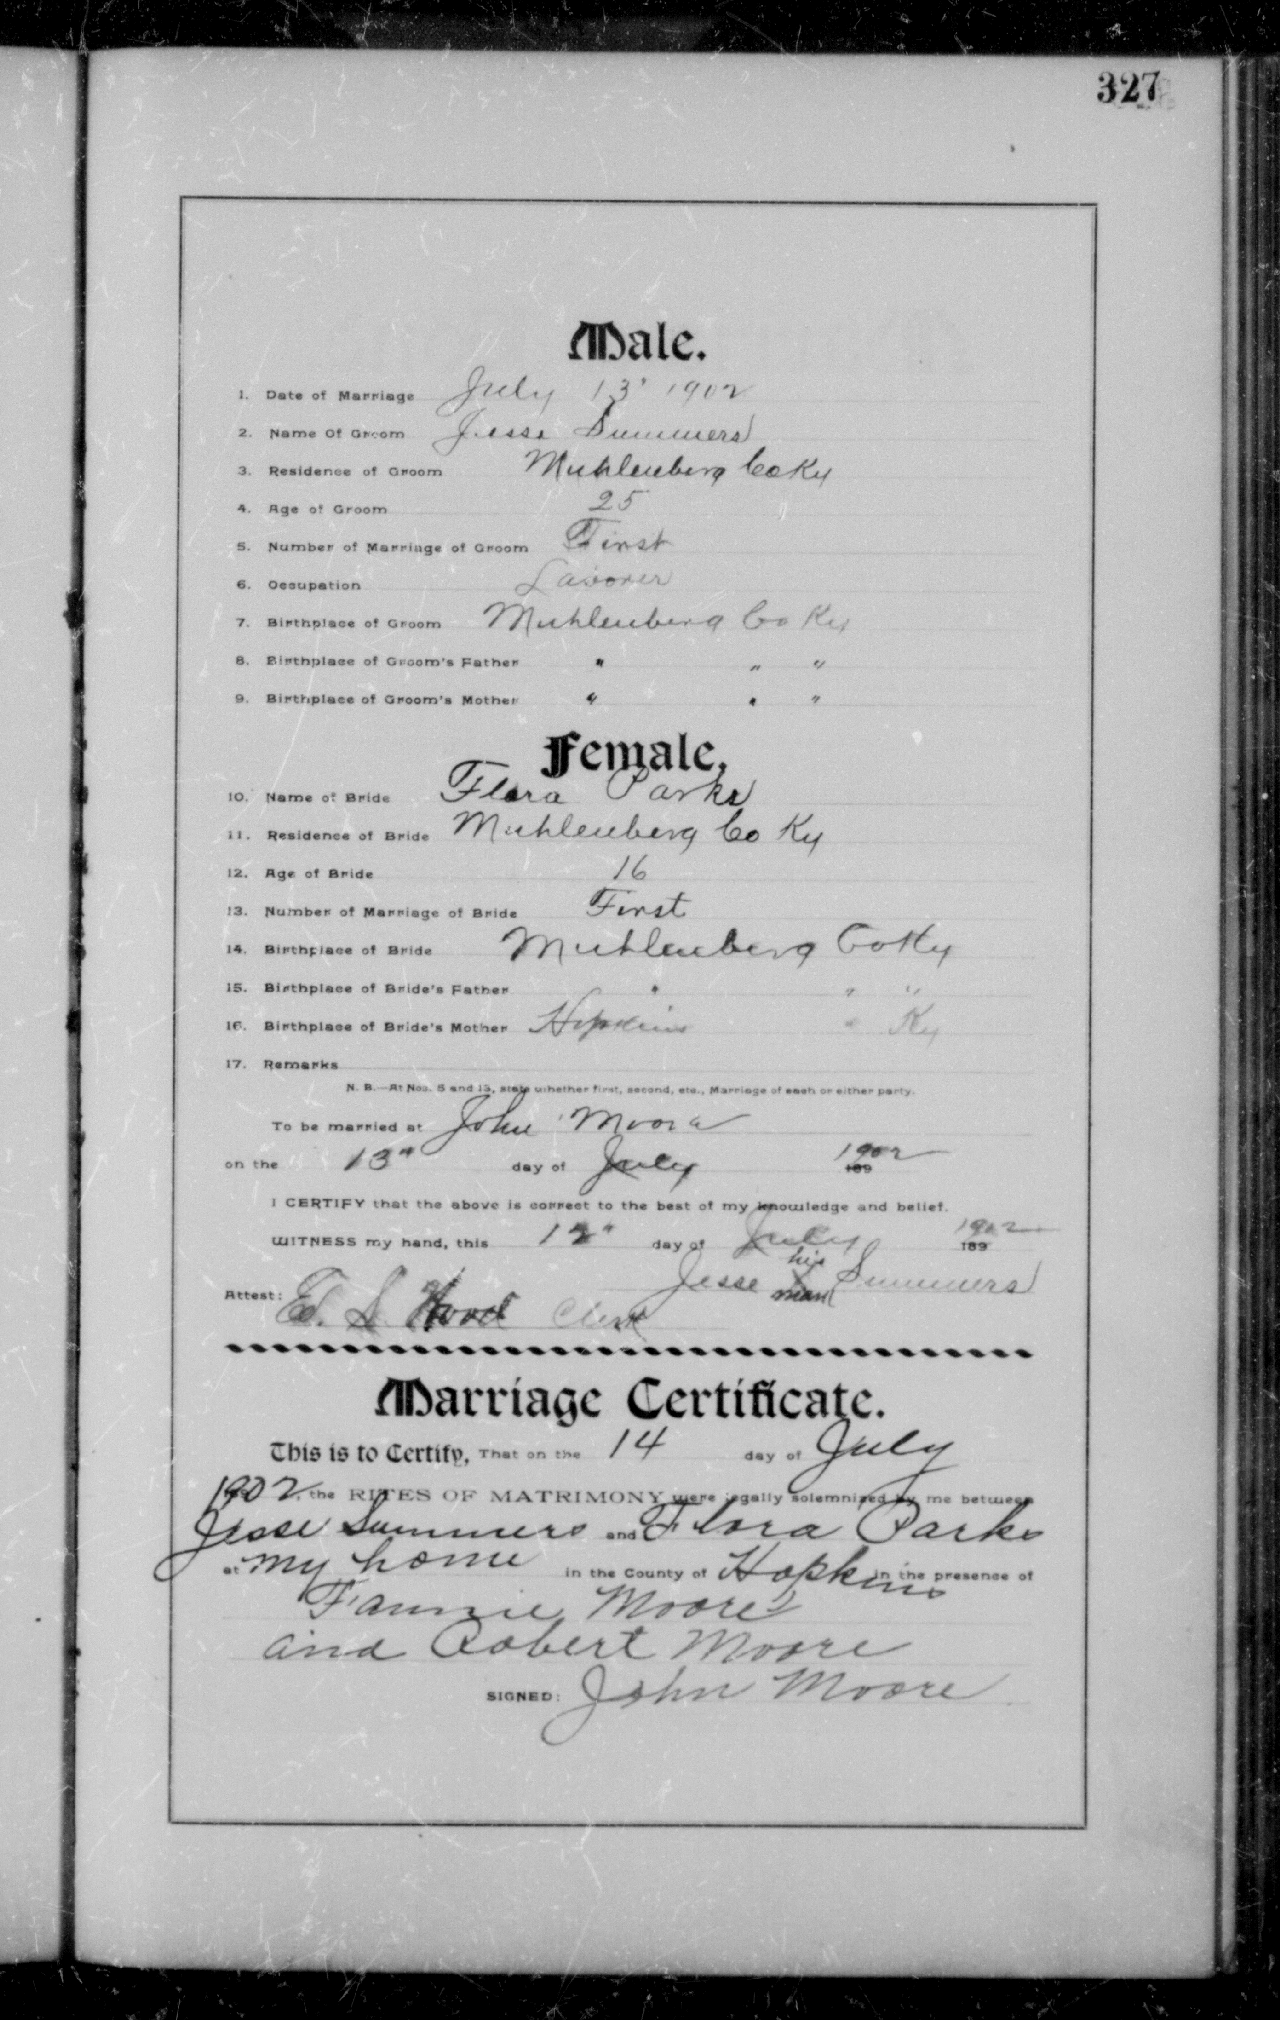 327
Male.
1. Date of Marriage July 13" 1902
2. Name Of Groom Jesse Summers
3. Residence of Groom Muhlenberg Co Ky
4. Age of Groom 25
5. Number of Marriage of Groom First
6. Occupation Laborer
7. Birthplace of Groom Muhlenberg Co Ky
8. Birthplace of Groom's Father " " "
9. Birthplace of Groom's Mother " " "
Female.
10. Name of Bride Flora Parks
11. Residence of Bride Muhlenberg Co Ky
12. Age of Bride 16
13. Number of Marriage of Bride First
14. Birthplace of Bride Muhlenberg Co Ky
15. Birthplace of Bride's Father " " "
16. Birthplace of Bride's Mother Hopkins " Ky
17. Remarks
N. B.—At Nos. 5 and 13, state whether first, second, etc., Marriage of each or either party.
To be married at John Moore
on the 13" day of July 1902 189
I CERTIFY that the above is correct to the best of my knowledge and belief.
WITNESS my hand, this 12" day of July 1902 189
his
Jesse X Summers
mark
Attest: Ed. S. Wood Clerk
Marriage Certificate.
This is to Certify, That on the 14 day of July
1902, the RITES OF MATRIMONY were legally solemnized by me between
Jesse Summers and Flora Parks
at my home in the County of Hopkins in the presence of
Fannie Moore
and Robert Moore
SIGNED: John Moore